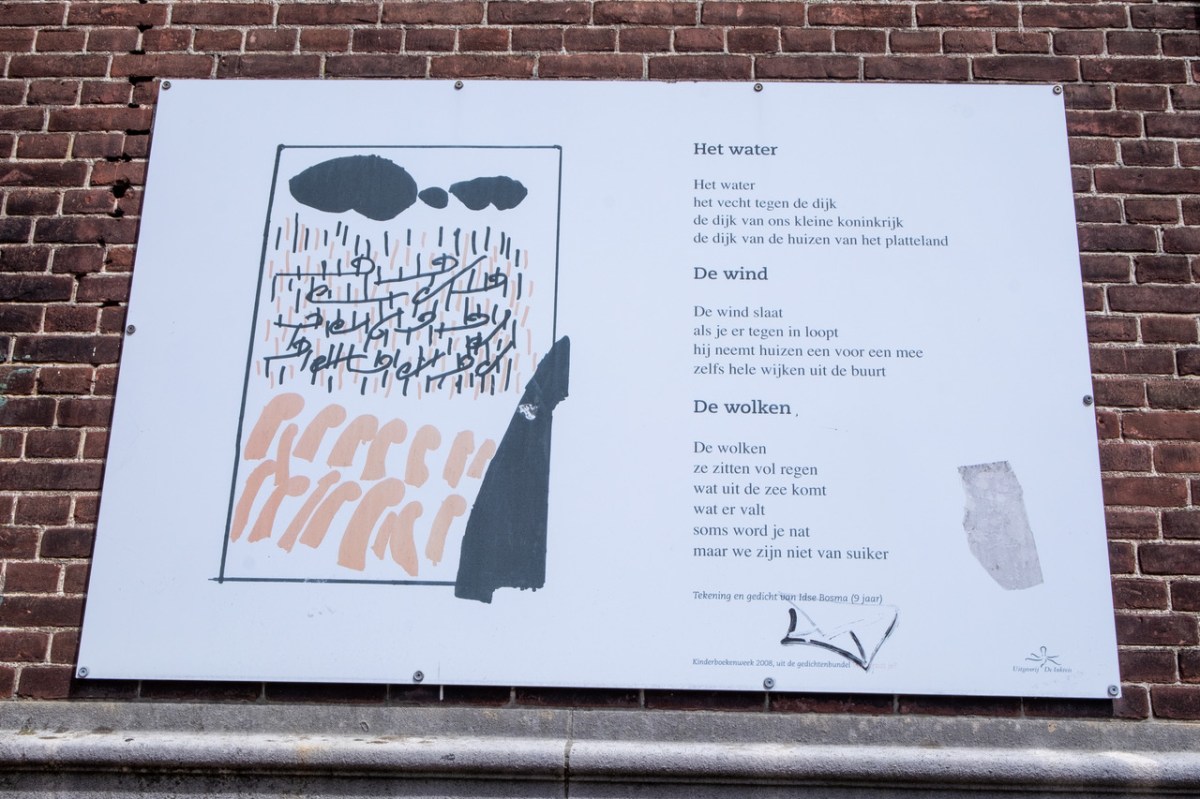 Het water
Het water
het vecht tegen de dijk
de dijk van ons kleine koninkrijk
de dijk van de huizen van het platteland
De wind
De wind slaat
als je er tegen in loopt
hij neemt huizen een voor een mee
zelfs hele wijken uit de buurt
De wolken
De wolken
ze zitten vol regen
wat uit de zee komt
wat er valt
soms word je nat
maar we zijn niet van suiker
Tekening en gedicht van Idse Bosma (9 jaar)
Kinderboekenweek 2008, uit de gedichtenbundel
Uitgeverij De Inktvis